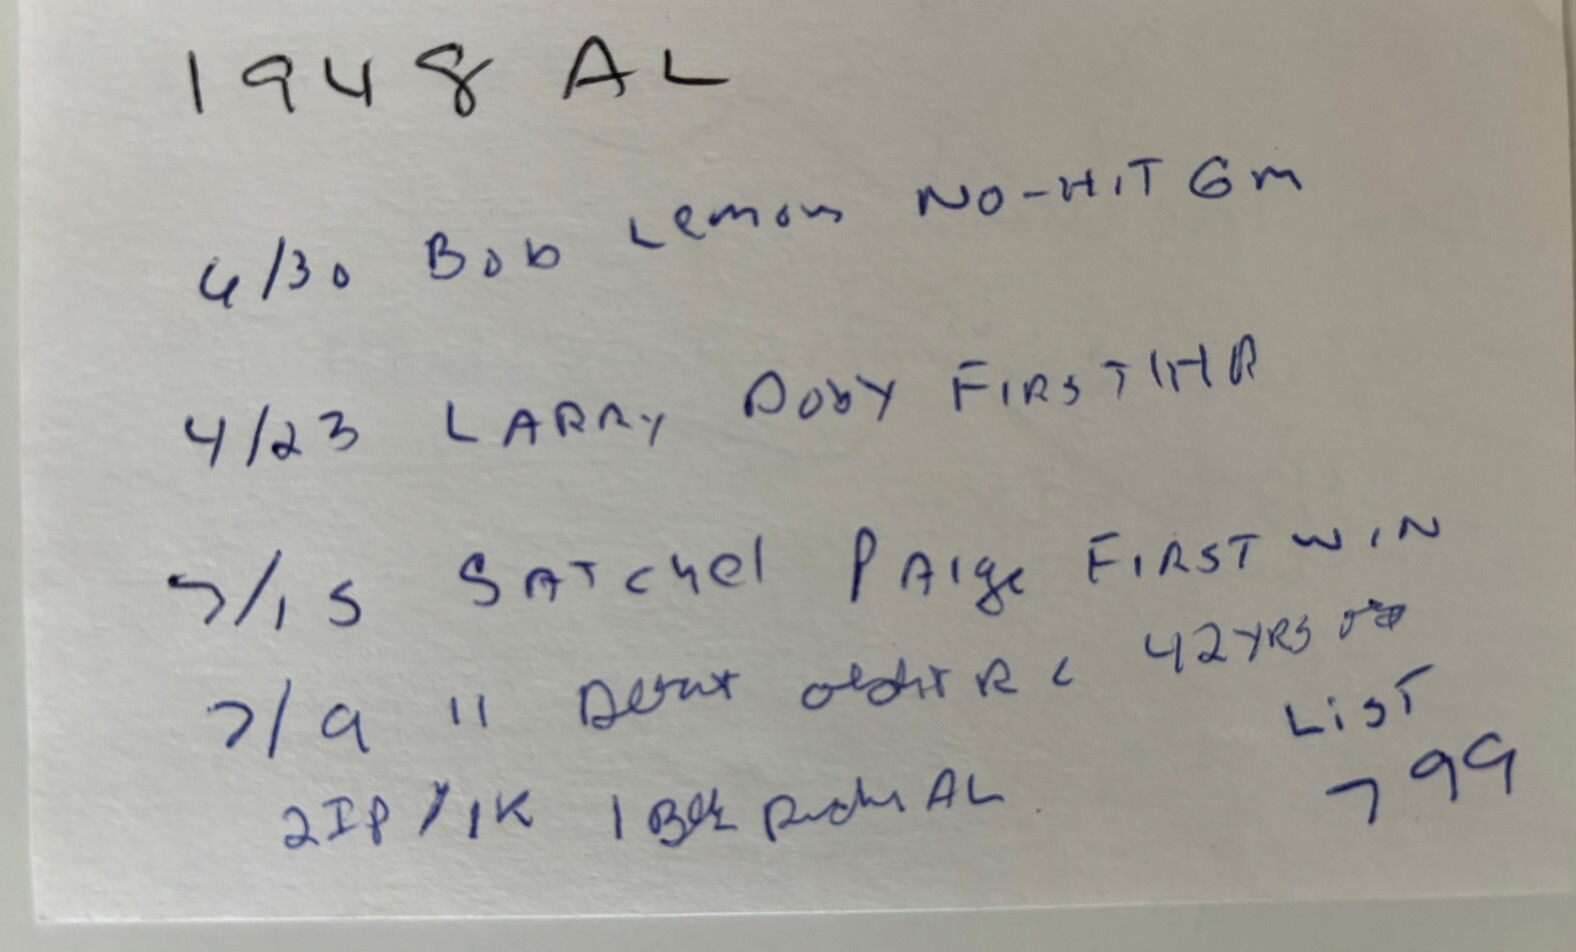 1948 AL
6/30 Bob Lemon NO-HIT Gm
4/23 LARRY DOBY FIRST HR
7/15 SATchel PAIge FIRST WIN
7/9 " Debut oldest R 42 YRS old
2IP / 1K 1 Blk Pitcher AL
LIST
799